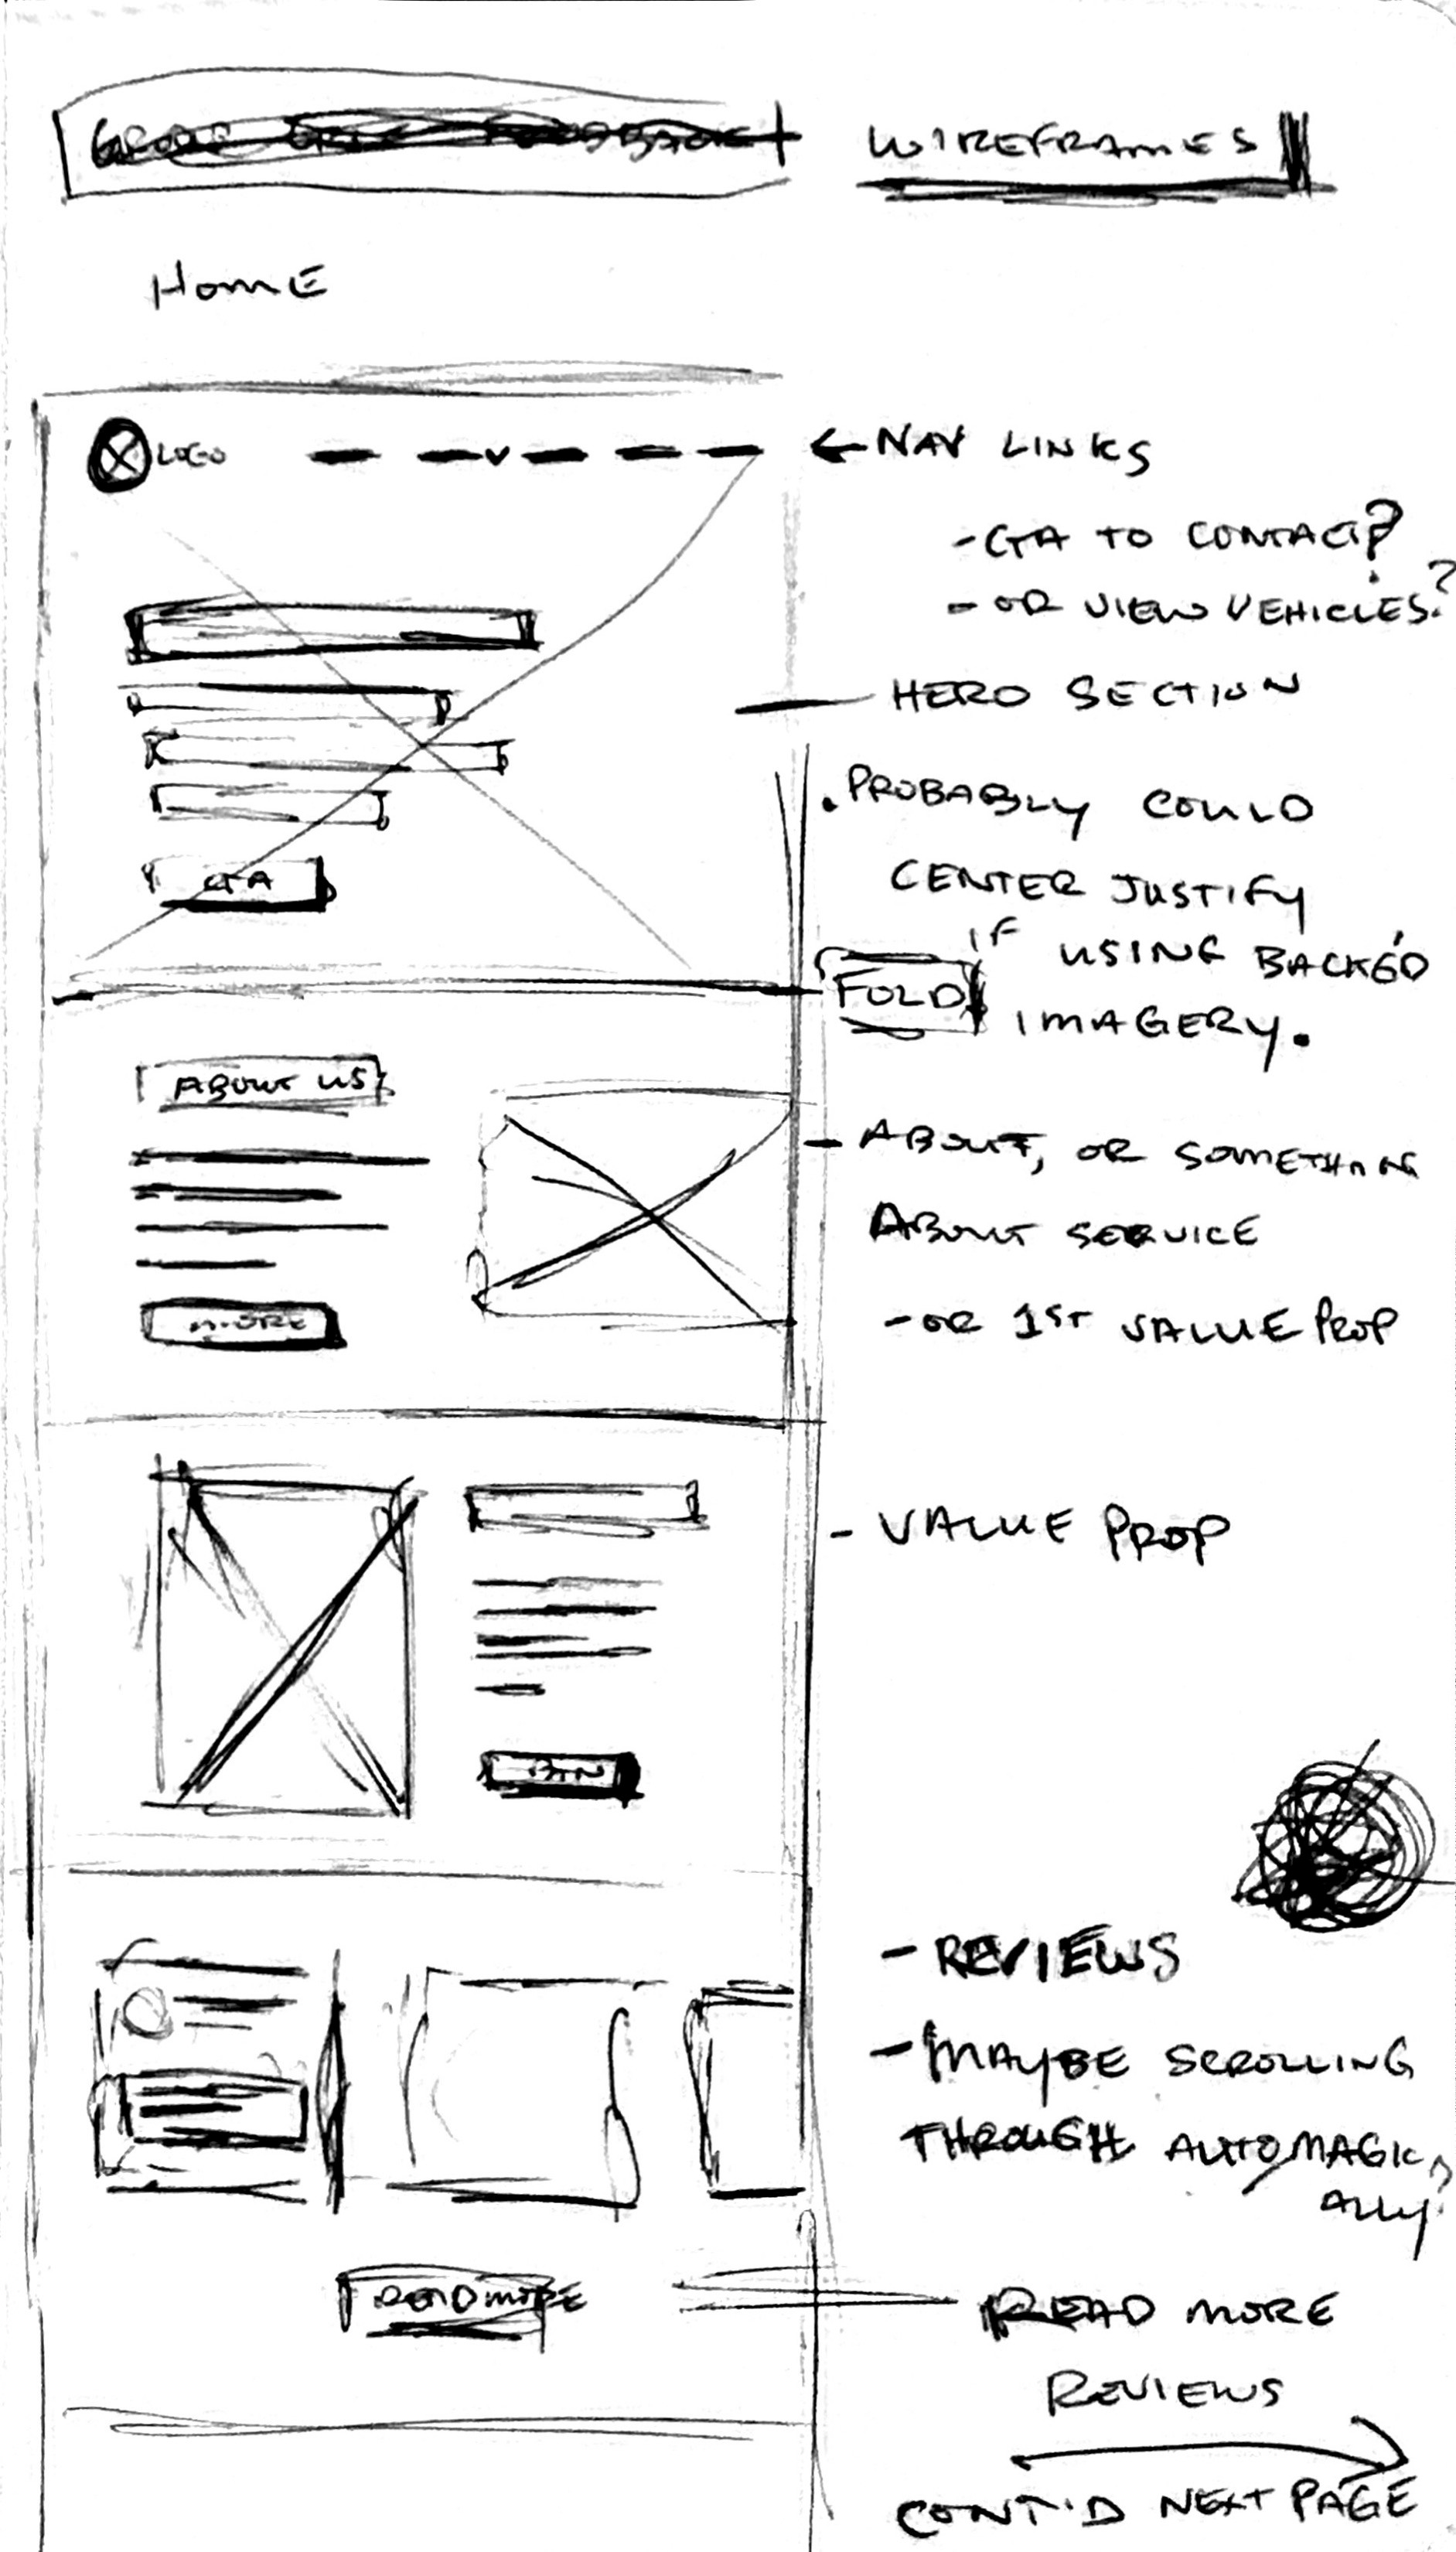 WIREFRAMES
HOME
LOGO
← NAV LINKS
- CTA TO CONTACT?
- OR VIEW VEHICLES?
HERO SECTION
. PROBABLY COULD
CENTER JUSTIFY
IF USING BACK'GD
IMAGERY.
CTA
FOLD
ABOUT US
- ABOUT, OR SOMETHING
ABOUT SERVICE
- OR 1ST VALUE PROP
MORE
- VALUE PROP
BTN
- REVIEWS
- MAYBE SCROLLING
THROUGH AUTOMAGIC
ALLY?
READ MORE
READ MORE
REVIEWS
CONT'D NEXT PAGE